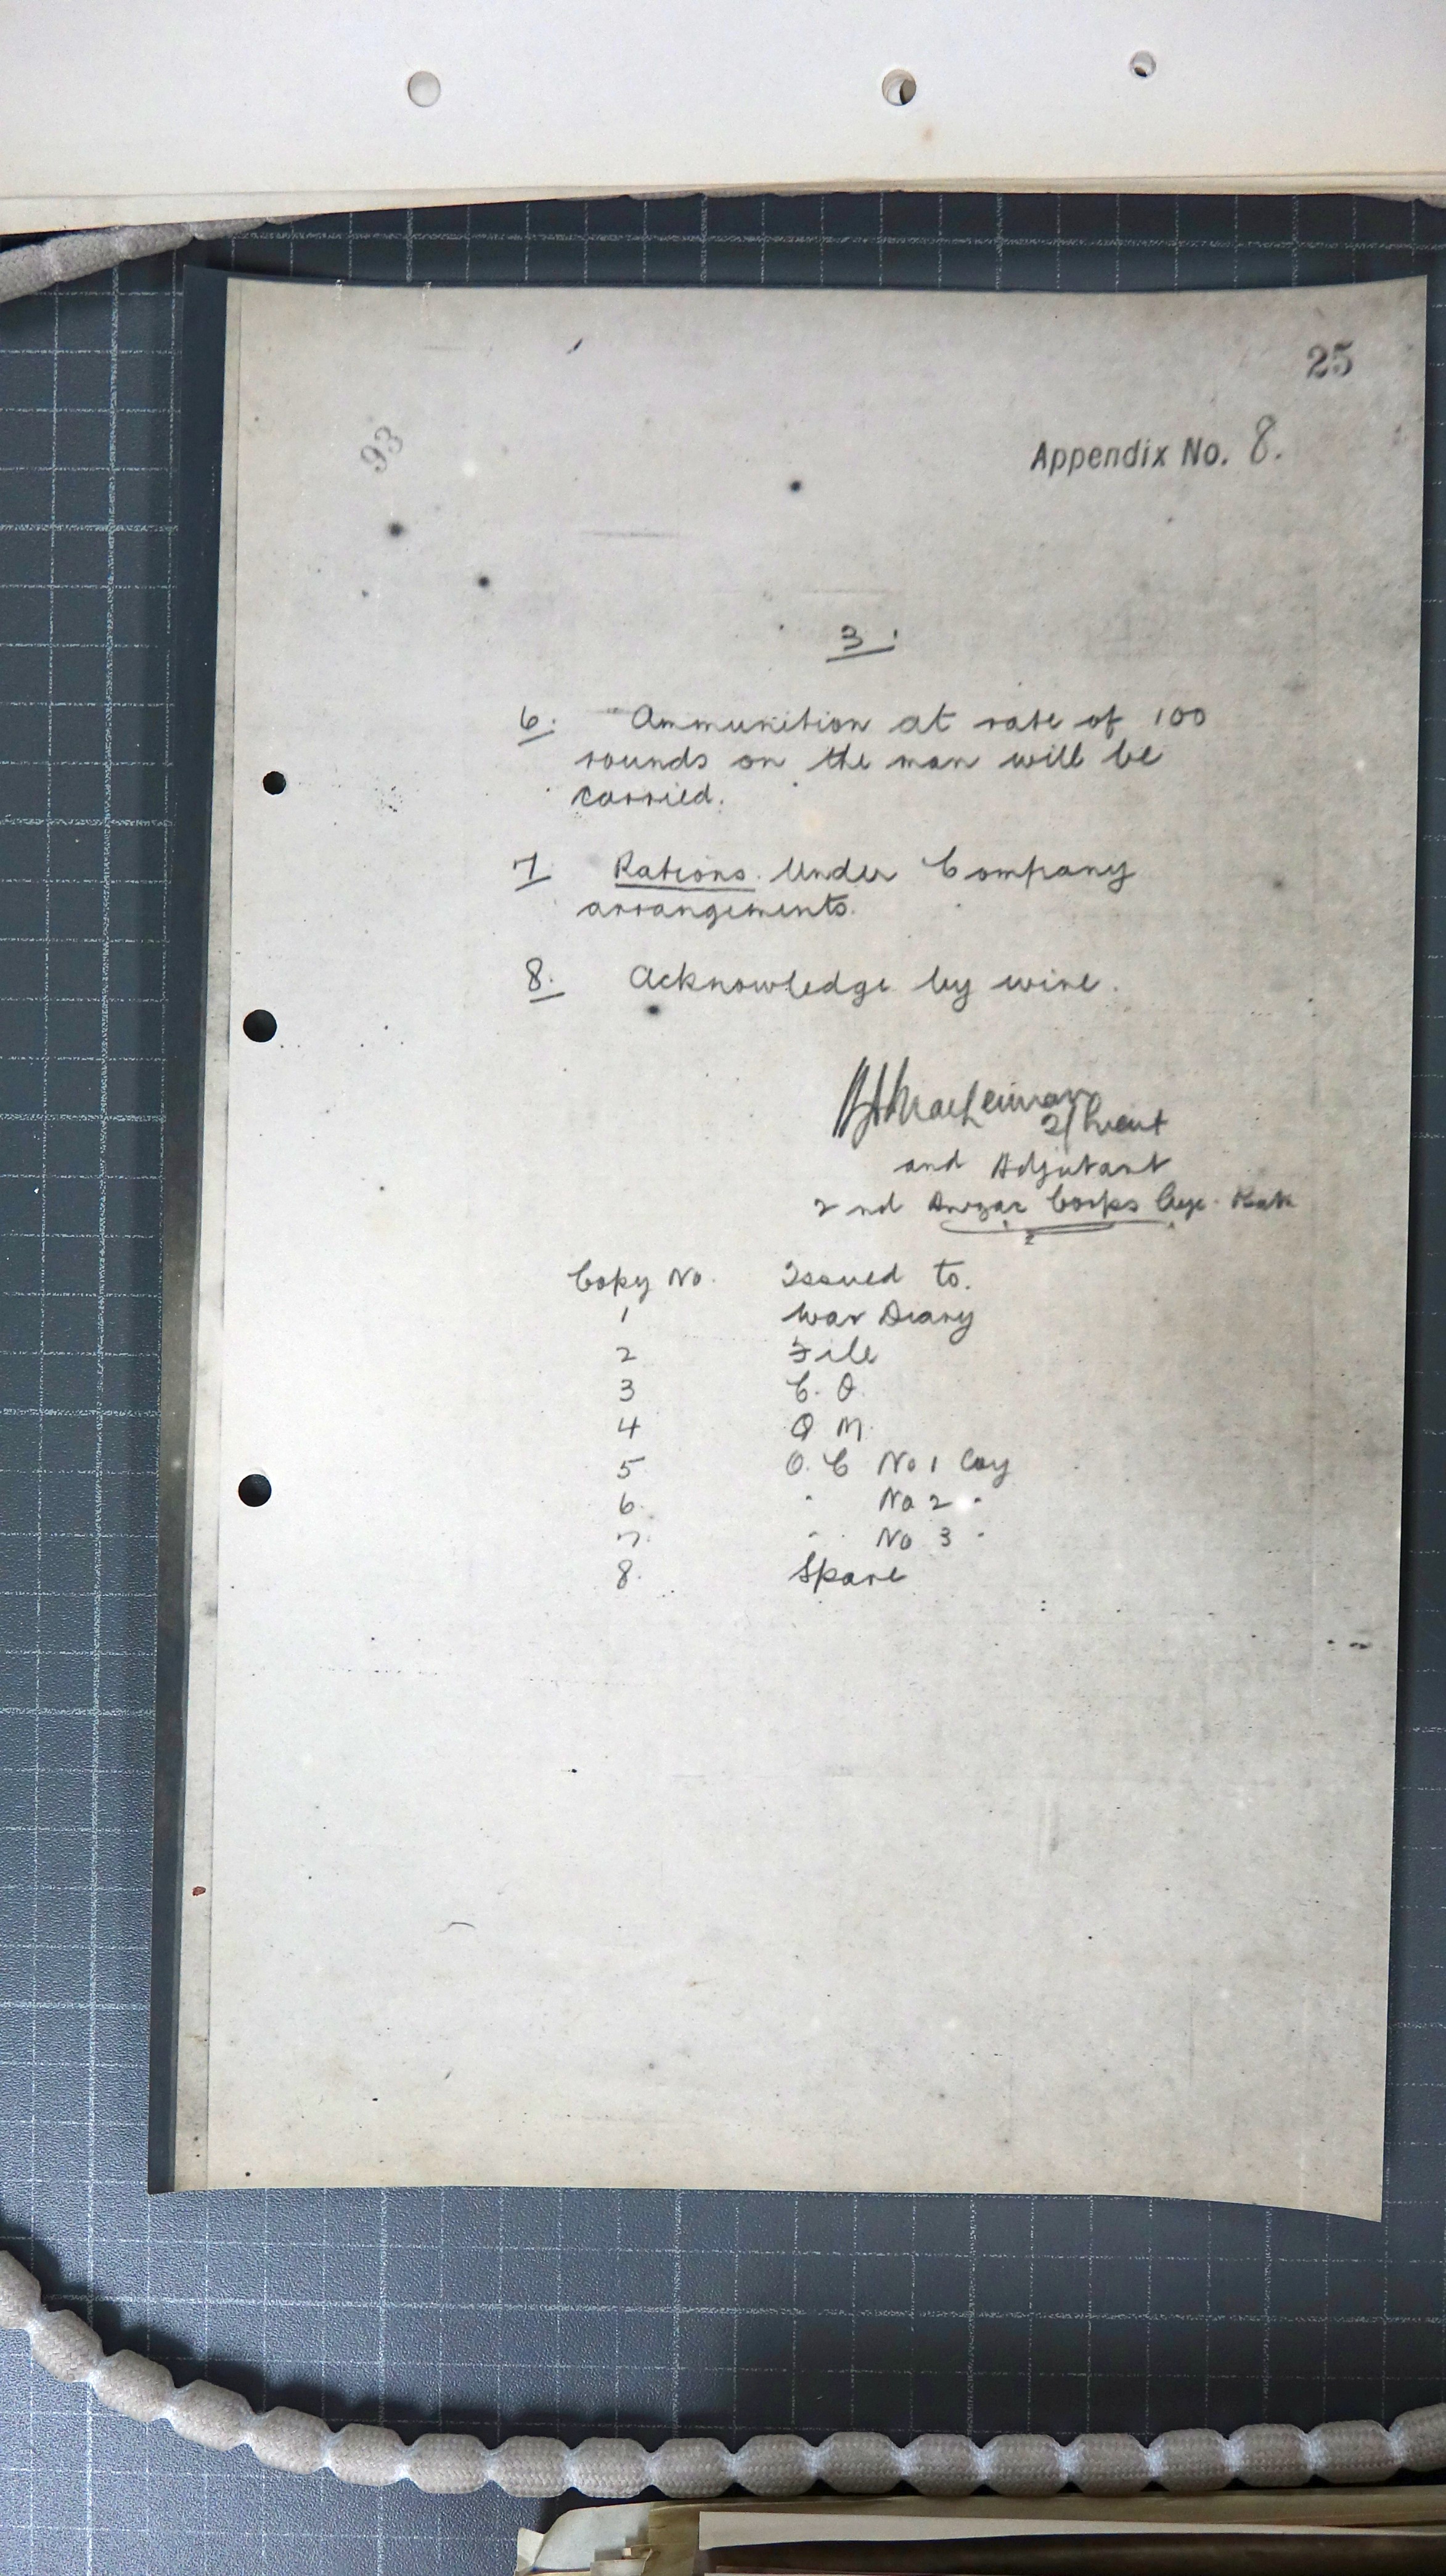 25
93
Appendix No. 8.
3.
6. Ammunition at rate of 100
rounds on the man will be
carried.
7 Rations. Under Company
arrangements.
8. Acknowledge by wire.
2/Lieut
and Adjutant
2nd Anzac Corps Cyc. Batt
Copy No. Issued to.
1 War Diary
2 File
3 C. O.
4 Q M.
5 O. C No 1 Coy
6. " No 2 "
7. " No 3 "
8. Spare